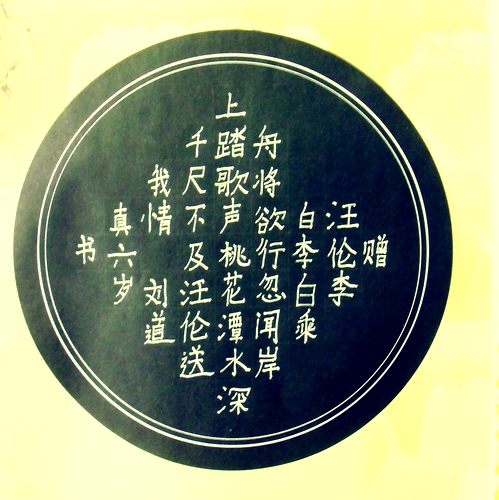 赠
汪伦李
白李白乘
舟将欲行忽闻岸
上踏歌声桃花潭水深
千尺不及汪伦送
我情 刘道
真六岁
书